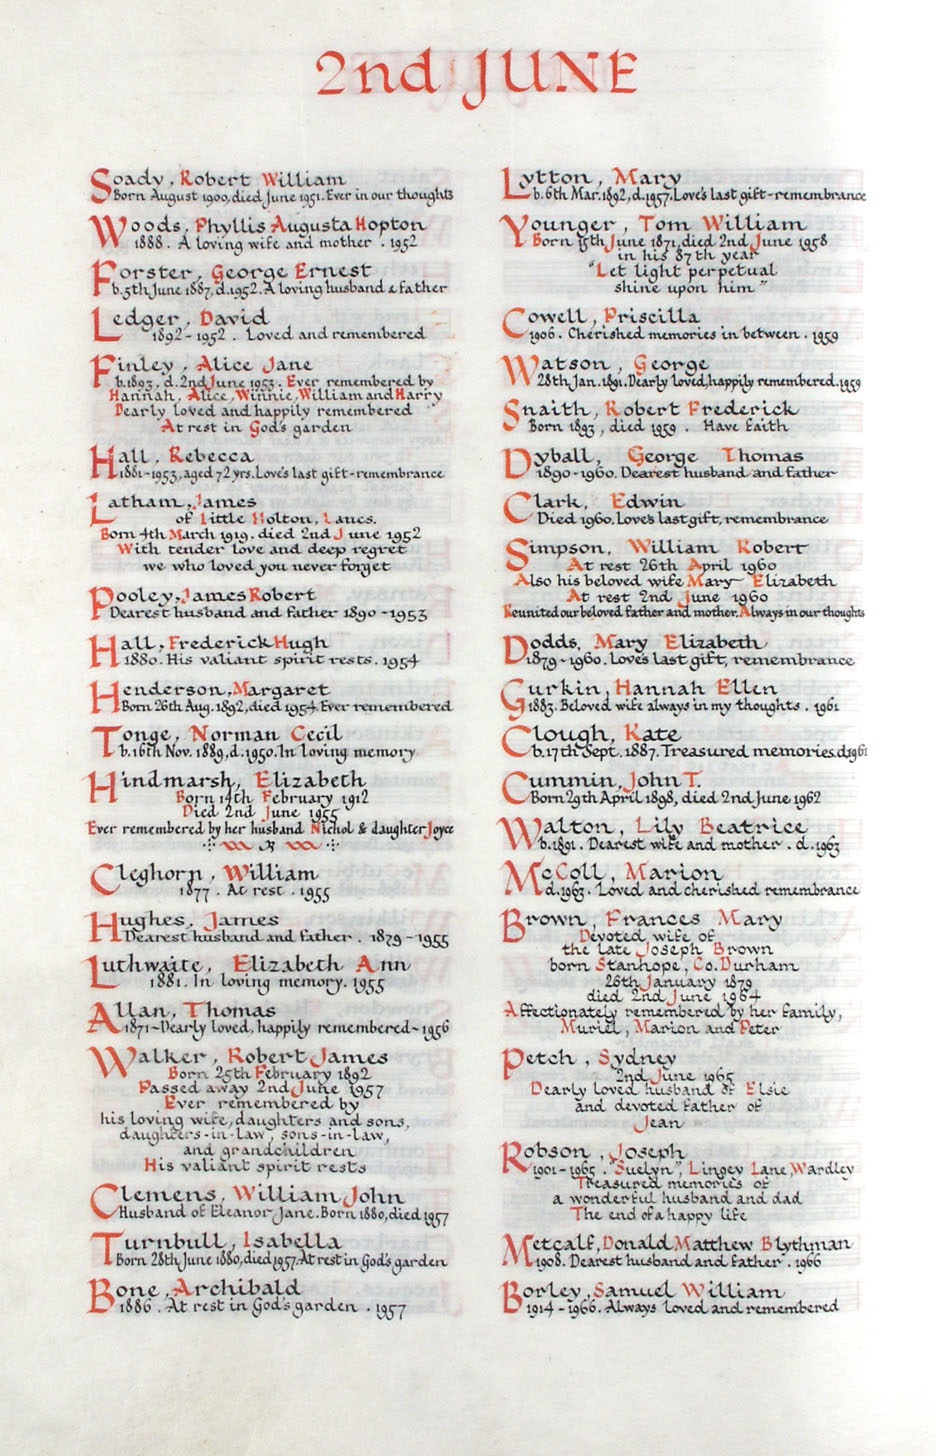 2nd JUNE
Soady, Robert William
Born August 1900, died June 1951. Ever in our thoughts
Woods, Phyllis Augusta Hopton
1888. A loving wife and mother. 1952
Forster, George Ernest
b. 5th June 1887, d. 1952. A loving husband & father
Ledger, David
1892 - 1952. Loved and remembered
Finley, Alice Jane
b. 1893, d. 2nd June 1953. Ever remembered by
Hannah, Alice, Winnie, William and Harry
Dearly loved and happily remembered
At rest in God's garden
Hall, Rebecca
1881-1953, aged 72 yrs. Love's last gift-remembrance
Latham, James
of Little Holton, Lancs.
Born 4th March 1919, died 2nd June 1952
With tender love and deep regret
we who loved you never forget
Pooley, James Robert
Dearest husband and father 1890 - 1953
Hall, Frederick Hugh
1880. His valiant spirit rests. 1954
Henderson, Margaret
Born 26th Aug. 1892, died 1954. Ever remembered
Tonge, Norman Cecil
b. 16th Nov. 1889, d. 1950. In loving memory
Hindmarsh, Elizabeth
Born 14th February 1912
Died 2nd June 1955
Ever remembered by her husband Nichol & daughter Joyce
Cleghorn, William
1877. At rest. 1955
Hughes, James
Dearest husband and father. 1879 - 1955
Luthwaite, Elizabeth Ann
1881. In loving memory. 1955
Allan, Thomas
1871-Dearly loved, happily remembered-1956
Walker, Robert James
Born 25th February 1892
Passed away 2nd June 1957
Ever remembered by
his loving wife, daughters and sons,
daughters-in-law, sons-in-law,
and grandchildren
His valiant spirit rests
Clemens, William John
Husband of Eleanor Jane. Born 1880, died 1957
Turnbull, Isabella
Born 28th June 1880, died 1957. At rest in God's garden
Bone, Archibald
1886. At rest in God's garden. 1957
Lytton, Mary
b. 6th Mar. 1892, d. 1957. Love's last gift-remembrance
Younger, Tom William
Born 15th June 1871, died 2nd June 1958
in his 87th year
"Let light perpetual
shine upon him"
Cowell, Priscilla
1906. Cherished memories in between. 1959
Watson, George
28th Jan. 1891. Dearly loved, happily remembered. 1959
Snaith, Robert Frederick
Born 1893, died 1959. Have faith
Dyball, George Thomas
1890-1960. Dearest husband and father
Clark, Edwin
Died 1960. Love's last gift, remembrance
Simpson, William Robert
At rest 26th April 1960
Also his beloved wife Mary Elizabeth
At rest 2nd June 1960
Reunited our beloved father and mother. Always in our thoughts
Dodds, Mary Elizabeth
1879-1960. Love's last gift, remembrance
Gurkin, Hannah Ellen
1883. Beloved wife always in my thoughts. 1961
Clough, Kate
b. 17th Sept. 1887. Treasured memories. d. 1961
Cummin, John T.
Born 29th April 1898, died 2nd June 1962
Walton, Lily Beatrice
b. 1891. Dearest wife and mother. d. 1963
McColl, Marion
d. 1963. Loved and cherished remembrance
Brown, Frances Mary
Devoted wife of
the late Joseph Brown
born Stanhope, Co. Durham
26th January 1879
died 2nd June 1964
Affectionately remembered by her family,
Muriel, Marion and Peter
Petch, Sydney
2nd June 1965
Dearly loved husband of Elsie
and devoted father of
Jean
Robson, Joseph
1901-1965. "Suelyn", Lingey Lane, Wardley
Treasured memories of
a wonderful husband and dad
The end of a happy life
Metcalf, Donald Matthew Blythman
1908. Dearest husband and father. 1966
Borley, Samuel William
1914 - 1966. Always loved and remembered